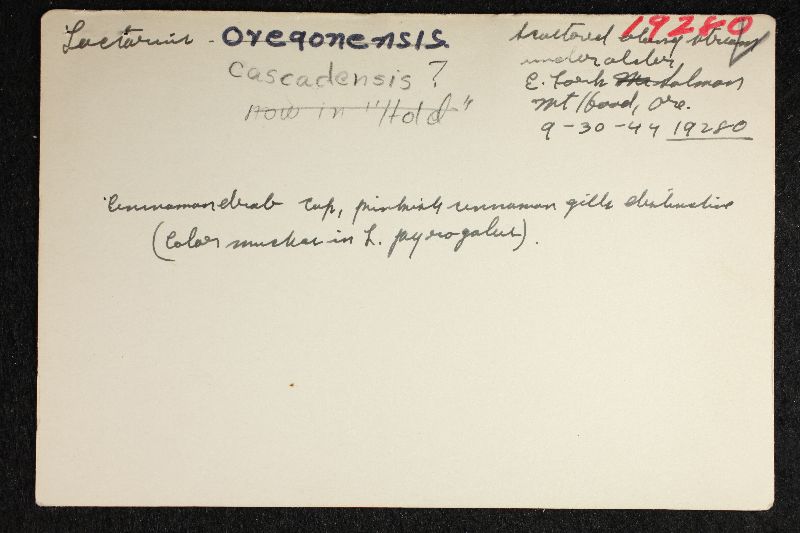 Lactarius - oregonensis
cascadensis ?
now in "Hold"
19280
Scattered along stream
under alder,
E. Fork Salmon
Mt Hood, Ore.
9-30-44 19280
Cinnamon drab cap, pinkish cinnamon gills distinctive
(Color much as in L. pyrogalus).